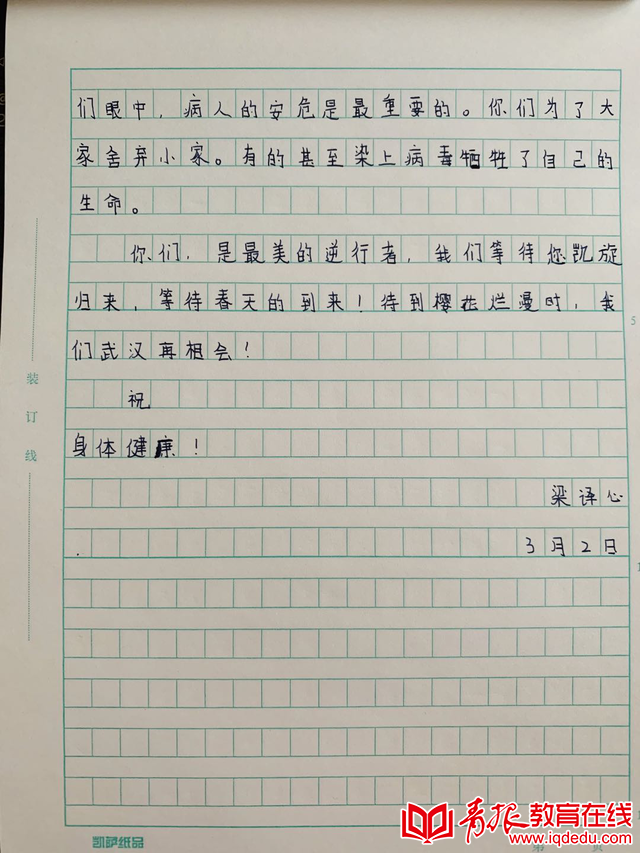 们眼中，病人的安危是最重要的。你们为了大
家舍弃小家。有的甚至染上病毒牺牲了自己的
生命。
你们，是最美的逆行者，我们等待您凯旋
归来，等待春天的到来！待到樱花烂漫时，我
们武汉再相会！
祝
身体健康！
梁译心
3月2日
装订线
5
凯萨纸品
第 页
青报教育在线
www.iqdedu.com